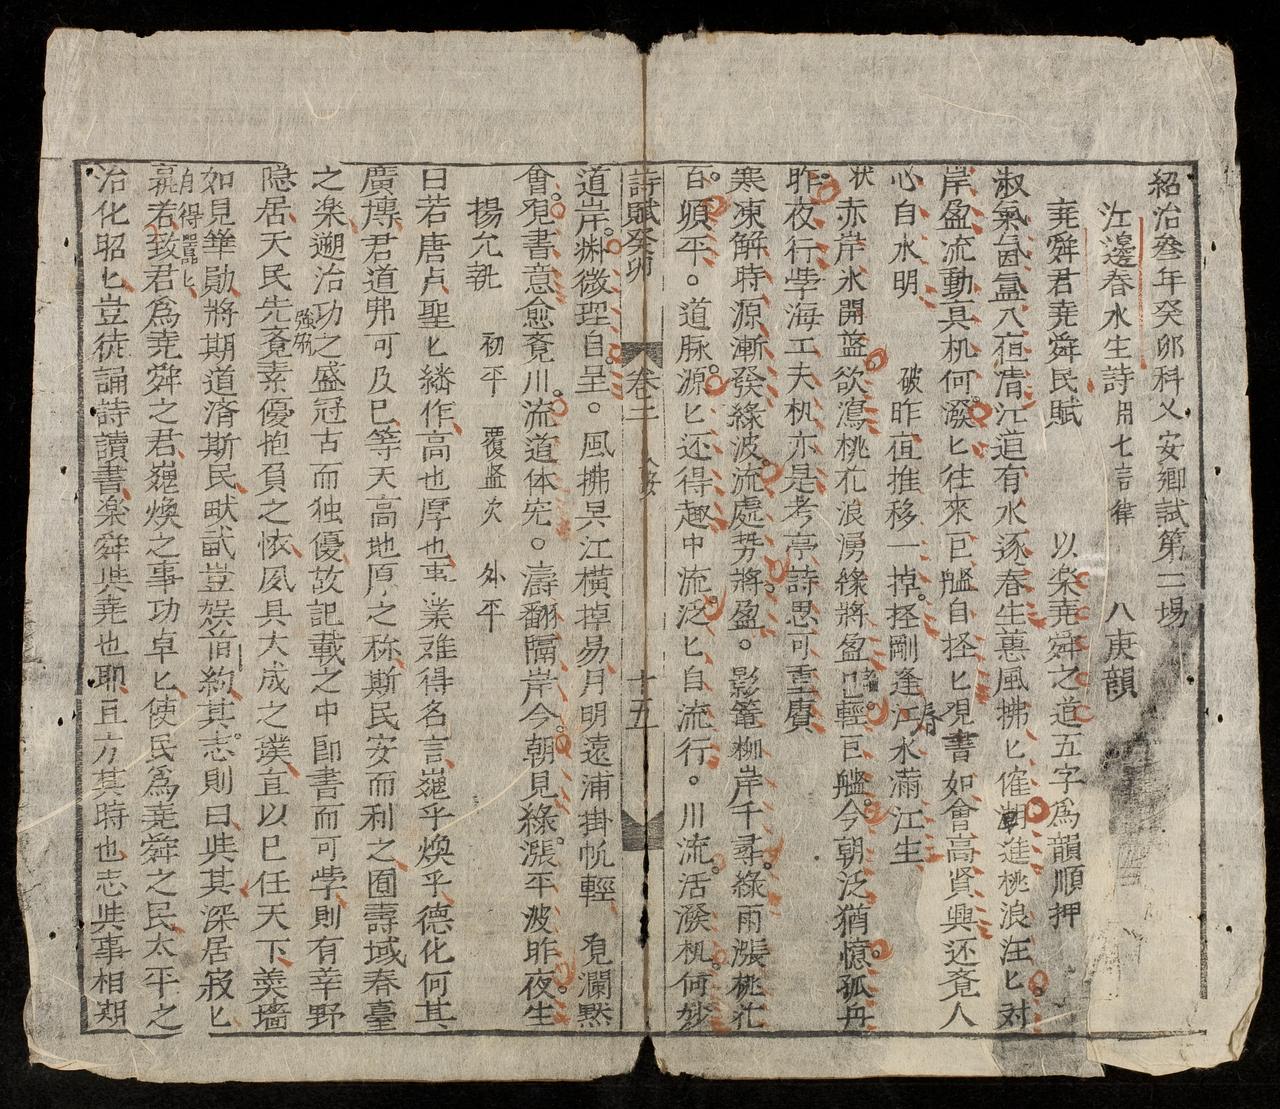 紹治叁年癸卯科乂安鄉試第二場
江邊春水生詩 用七言律 八庚韻
堯舜君堯舜民賦 以樂堯舜之道五字為韻順押
淑氣氤氳八
清江道有水逐春生蕙風拂匕催潮進桃浪汪匕对
岸盈流動真机何潑匕往來巨艦自
匕覌書如會高賢興还
人
心自水明 破 昨
推移一掉
剛逢江水滿江生
狀 赤岸水開藍欲瀉桃花浪湧綠將盈
輕巨艦今朝泛猶憶孤舟
昨夜行學海工夫机亦是考亭詩思可重賡
寒凍解時源漸發綠波流處势將盈。影篭柳岸千尋綠雨漲桃花
百頃平。道脉源匕还得趣中流泛匕自流行。川流活潑机何妙
詩賦癸卯 卷二 乂安 十五
道岸淵微理自呈。風拂具江橫掉易月明遠浦掛帆輕
瀾默
會覌書意愈
川流道体
。濤翻隔岸今朝見綠漲平波昨夜生
楊允
初平 覆监次 外平
曰若唐
聖匕繙作高也厚也事業难得名言巍乎煥乎德化何其
廣慱君道弗可及已等天高地厚之称斯民安而利之囿壽域春臺
之楽遡治功之盛冠古而独優故記載之中即書而可學則有莘野
隐居天民先
素優抱負之恢夙具大成之
直以已任天下羙墻
如見華勛將期道済斯民畎畝豈娱
約其志則曰與其深居寂匕
自得囂匕
孰若致君為堯舜之君巍煥之事功卓匕使民為堯舜之民太平之
治化昭匕豈徒誦詩讀書楽舜與堯也耶且方其時也志與事相期